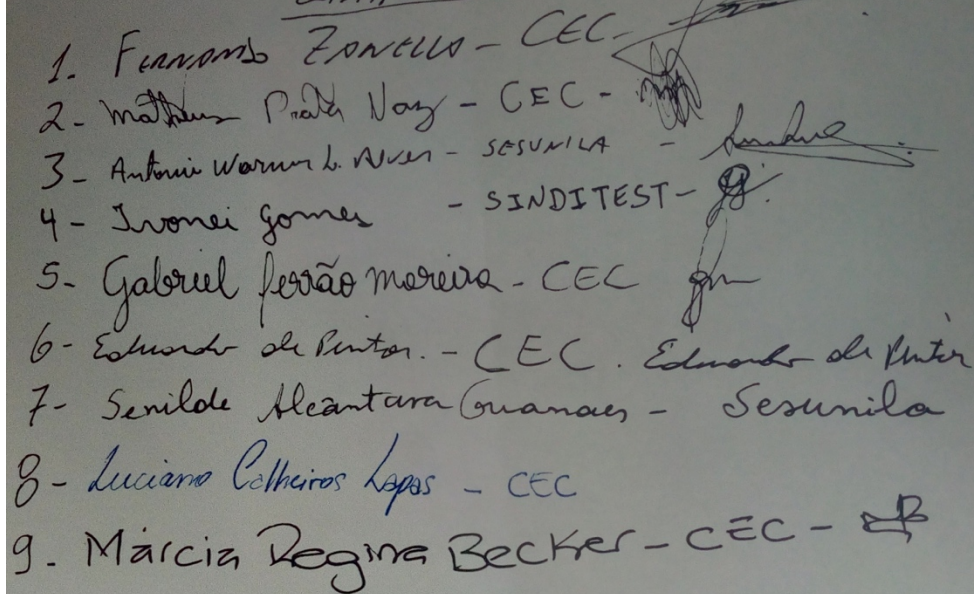 1. Fernando Zanella - CEC -
2 - Matheus Prata Vaz - CEC -
3 - Antonio Warner L. Alves - SESUNILA -
4 - Ivonei gomes - SINDITEST -
5 - Gabriel ferrão moreira - CEC
6 - Eduardo de Pintor. - CEC. Eduardo de Pintor
7 - Senilde Alcantara Guanaes - Sesunila
8 - Luciano Calheiros Lapas - CEC
9. Márcia Regina Becker - CEC -